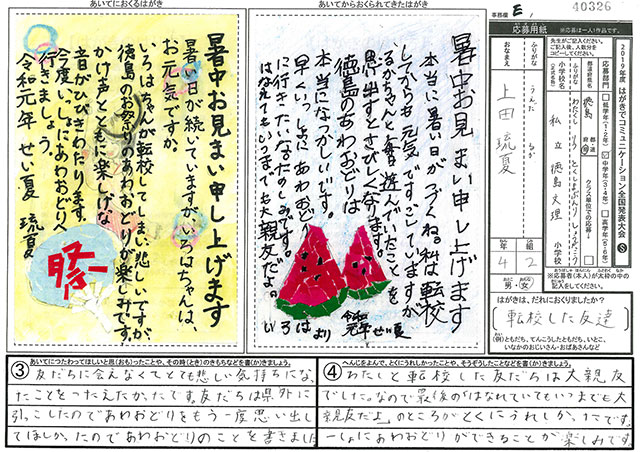 あいてにおくるはがき
暑中お見まい申し上げます
お元気ですか。
暑い日が続いていますがいろはちゃんは、
いろはちゃんが転校してしまい、悲しいですが、
徳島のお祭りのあわおどりが楽しみです。
かけ声とともに楽しげな
音がひびきわたります。
今度いっしょにあわおどりへ
行きましょう。
令和元年 せい夏 琉夏
祭
あいてからおくられてきたはがき
暑中お見まい申し上げます
本当に暑い日がつづくね。私は転校
してからも元気ですごしていますが
るかちゃんと毎日遊んでいたことを
思い出すとさびしくなります。
徳島のあわおどりは
本当になつかしいです。
早くいっしょにあわおどり
に行きたいな。たのしみです。
はなれていてもいつまでも大親友だよ。
令和元年 せい夏
いろはより
事務欄 E
40326
2019年度 はがきでコミュニケーション全国発表大会 S
応募用紙
※応募は一人1作品です。
先生がご記入ください。
ご記入後、人数分を
コピーしてください。
応募部門
低学年(1・2年)
中学年(3・4年)
高学年(5・6年)
クラス単位での応募
都道府県名
徳島
都道府県
ふりがな
小学校名
(正式名称)
私立徳島文理
小学校
ふりがな
おなまえ
うえた るか
上田 琉夏
4年
2組
男・女
※応募者(本人)が太枠の中の
記入をしてください。
はがきは、だれにおくりましたか?
転校した友達
(例)ともだち、てんこうしたともだち、いとこ、
いなかのおじいさん・おばあさんなど
あいてにつたわってほしいと思(おも)ったことや、その時(とき)のきもちなどを書(か)きましょう。
③ 友だちに会えなくてとても悲しい気持ちにな
たことをつたえたかったです。友だちは県外に
引っこしたのであわおどりをもう一度思い出し
てほしかったのであわおどりのことを書きました
へんじをよんで、とくにうれしかったことや、そうぞうしたことなどを書(か)きましょう。
④ わたしと転校した友だちは大親友
でした。なので最後の「はなれていてもいつまでも大
親友だよ」のところがとくにうれしかったです。
一しょにあわおどりができることが楽しみです。